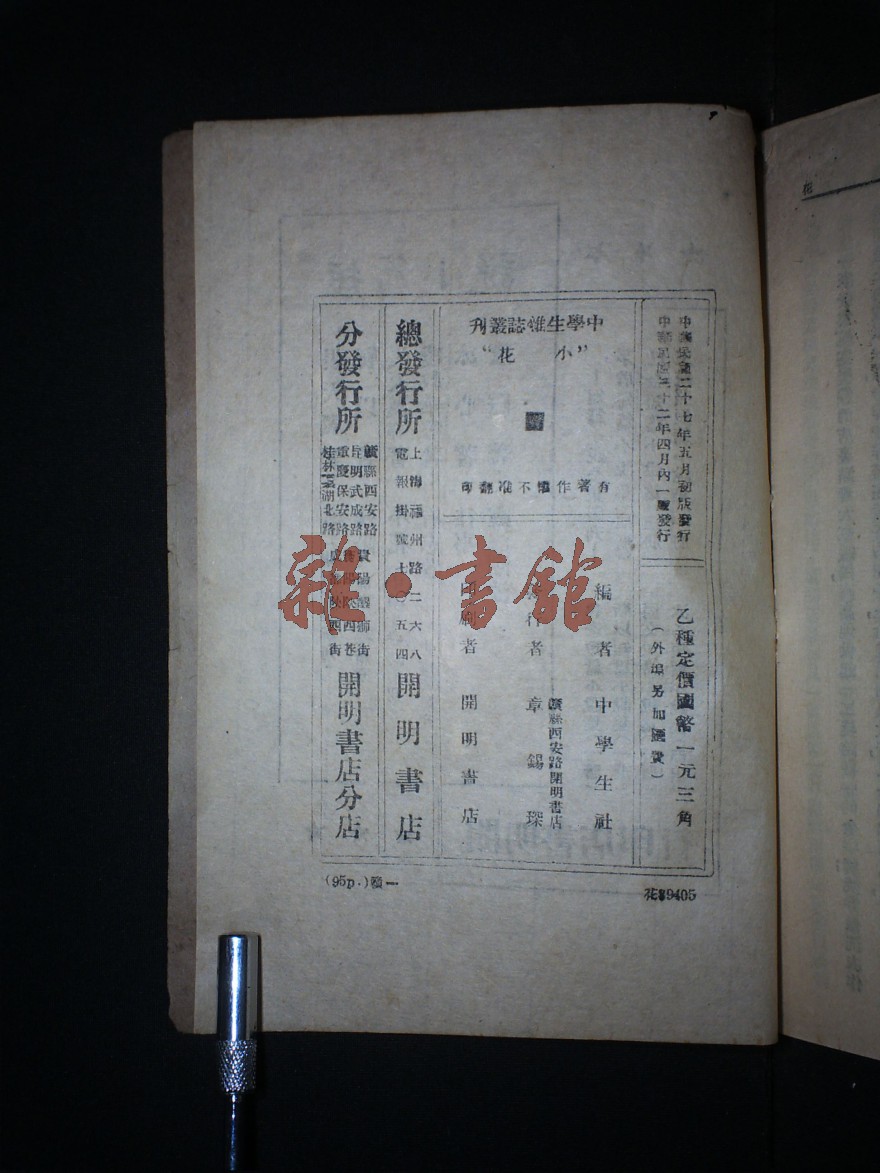 中華民國二十七年五月初版發行
中華民國三十二年四月內一版發行
乙種定價國幣一元三角
(外埠另加匯費)
中學生雜誌叢刊
“小花”
有著作權不准翻印
編著者 中學生社
發行者 章錫琛
贛縣西安路開明書店
印刷者 開明書店
總發行所
上海福州路二六八
電報掛號七〇五四
開明書店
分發行所
贛縣西安路
昆明武成路
重慶保安路
桂林 湖北路
貴陽醒獅街
開明書店分店
(95p.)贛一
花 39405
雜·書館
花